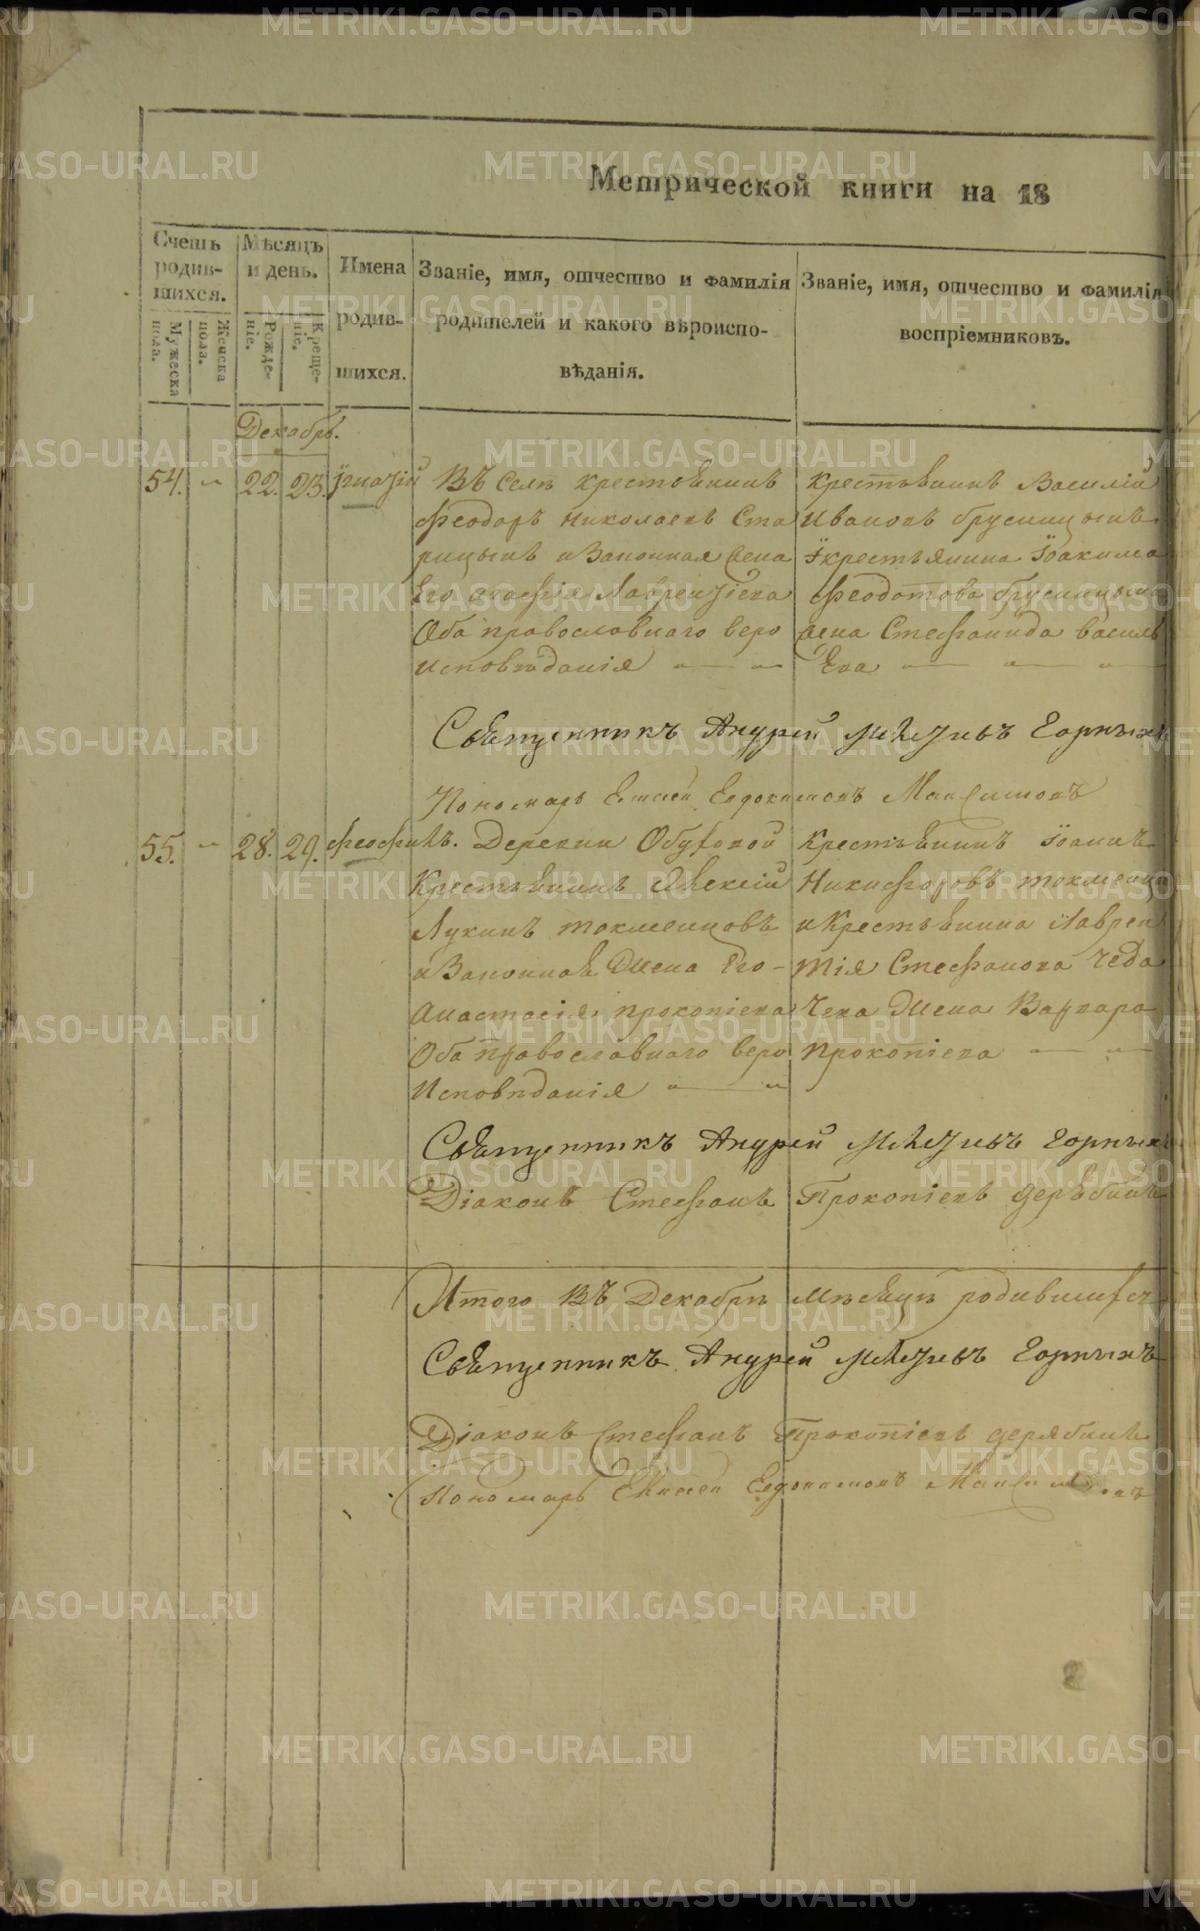 Метрической книги на 18
Счетъ родив-шихся.
Мужеска пола.
Женска пола.
Мѣсяцъ и день.
Рожде-ніе.
Креще-ніе.
Имена родив-шихся.
Званіе, имя, отчество и фамилія
родителей и какого вѣроиспо-
вѣданія.
Званіе, имя, отчество и фамилія
воспріемниковъ.
Декабрь.
54. 22. 23. Їгнатій
Въ Селѣ крестьянинъ
Феодоръ Николаевъ Ста
рицынъ и Законная жена
Его Агафія Лаврентіева
Оба православнаго веро
исповѣданія
Крестьянинъ Василій
Ивановъ брусницынъ
крестьянина Їоакима
Феодотова брусницына
жена Стефанида василь
Ева
Священникъ Андрей Горныхъ
Пономарь Елисей Евдокимовъ Максимовъ
55. 28. 29. Феофилъ.
Деревни Обуховой
Крестьянинъ Алексій
Лукинъ токменцовъ
и Законная Жена Его
Анастасія прокопіева
Оба православнаго веро
Исповѣданія
Крестьянинъ Їоаннъ
Никифоровъ токменцо
и Крестьянина Лаврен
тія Стефанова
Жена Варвара
Прокопіева
Священникъ Андрей Горныхъ
Діаконъ Стефанъ Прокопіевъ дерябинъ
Итого Въ Декабрѣ мѣсяцѣ родившихся
Священникъ Андрей Горныхъ
Діаконъ Стефанъ Прокопіевъ дерябинъ
Пономарь Елисей Евдокимовъ Максимовъ
METRIKI.GASO-URAL.RU